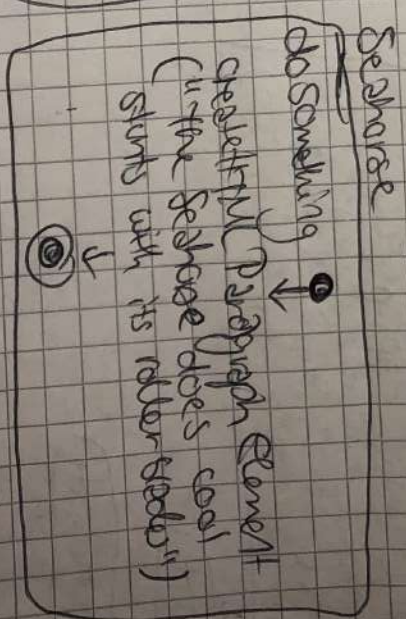 Seahorse
doSomething
createHTMLParagraph Element
("the Seahorse does cool
stunts with its rollerblades")